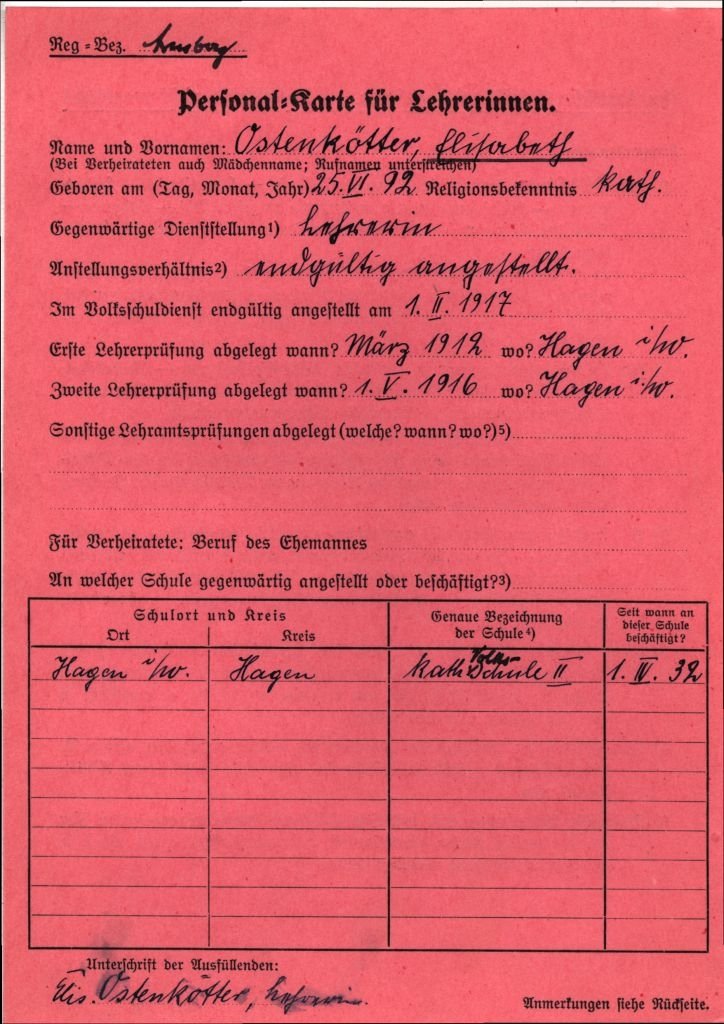 Reg=Bez. Arnsberg
Personal=Karte für Lehrerinnen.
Name und Vornamen: Ostenkötter, Elisabeth
(Bei Verheirateten auch Mädchenname; Rufnamen unterstreichen)
Geboren am (Tag, Monat, Jahr) 25. VI. 92 Religionsbekenntnis kath.
Gegenwärtige Dienststellung¹) Lehrerin
Anstellungsverhältnis²) endgültig angestellt.
Im Volksschuldienst endgültig angestellt am 1. II. 1917
Erste Lehrerprüfung abgelegt wann? März 1912 wo? Hagen i/W.
Zweite Lehrerprüfung abgelegt wann? 1. V. 1916 wo? Hagen i/W.
Sonstige Lehramtsprüfungen abgelegt (welche? wann? wo?)⁵)
Für Verheiratete: Beruf des Ehemannes
An welcher Schule gegenwärtig angestellt oder beschäftigt?³)
Schulort und Kreis
Ort Kreis
Genaue Bezeichnung
der Schule⁴)
Seit wann an
dieser Schule
beschäftigt?
Hagen i/W. Hagen kath. Volks-Schule II 1. IV. 32
Unterschrift der Ausfüllenden:
Elis. Ostenkötter, Lehrerin.
Anmerkungen siehe Rückseite.